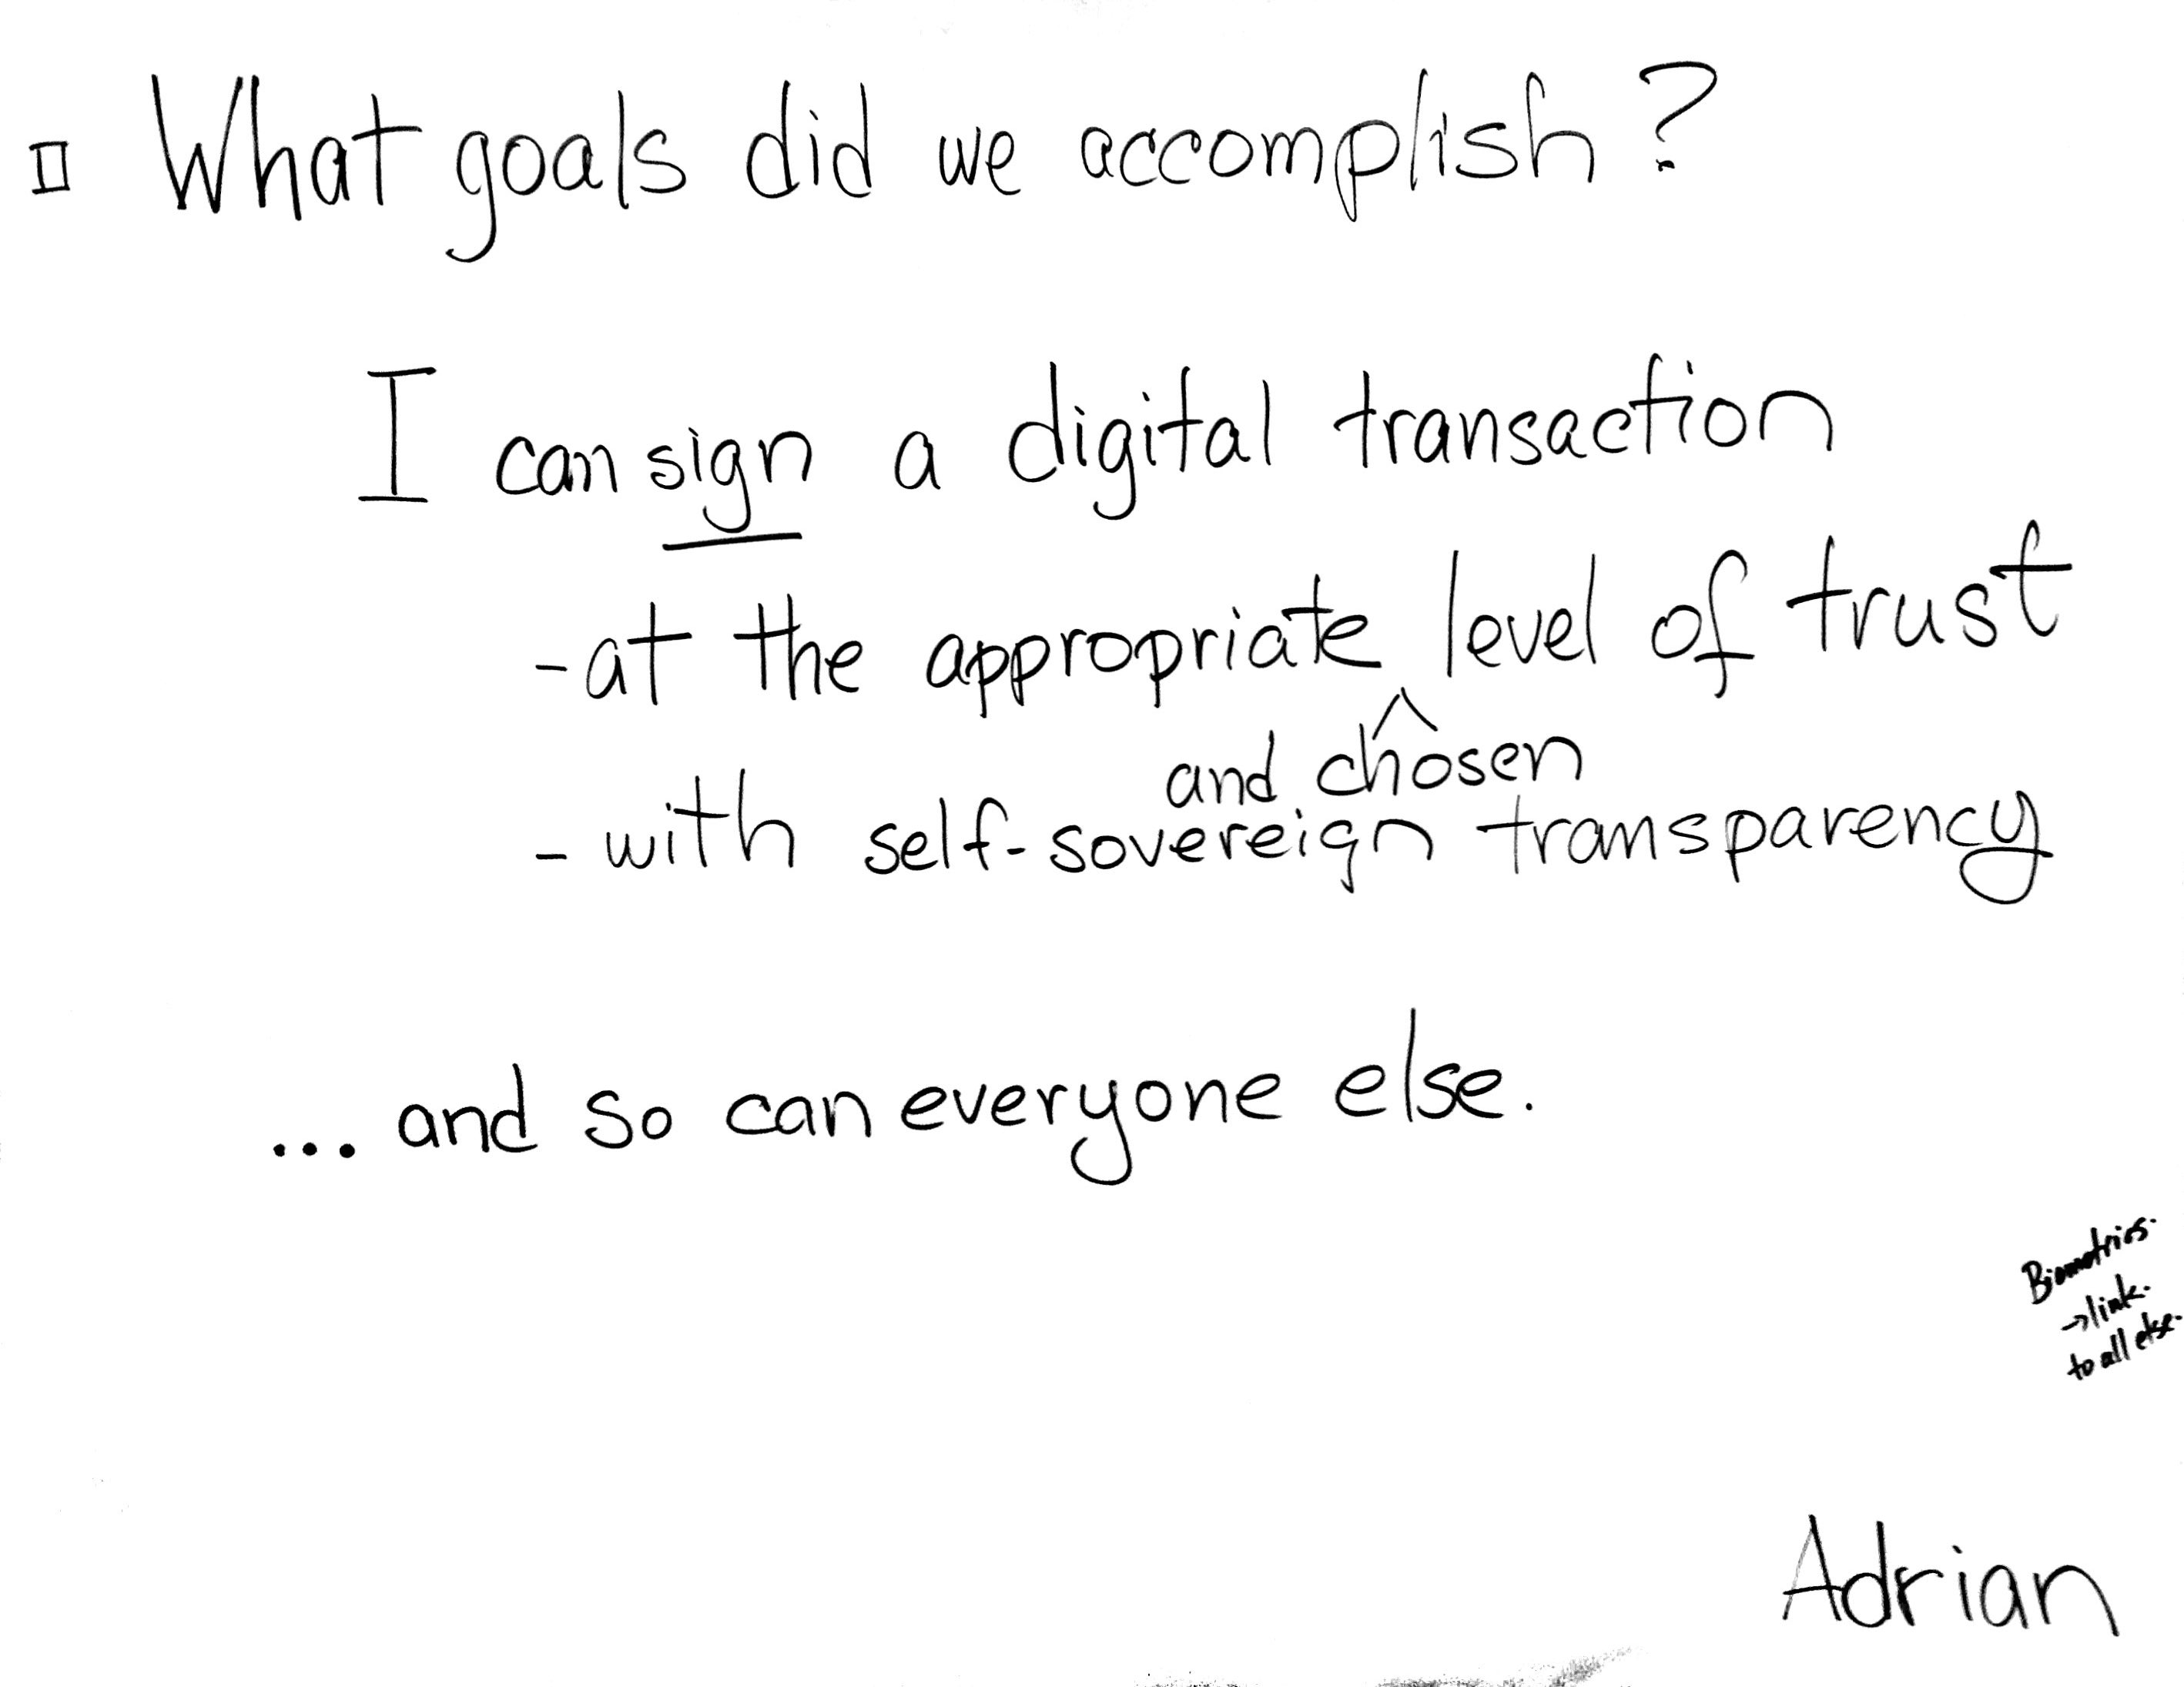 II What goals did we accomplish?
I can sign a digital transaction
- at the appropriate level of trust
and chosen
- with self-sovereign transparency
... and so can everyone else.
Biometrics.
→ link.
to all else.
Adrian